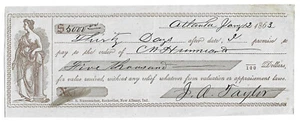 $5000 Atlanta Jany 12 1863
Thirty Days after date I promise to
pay to the order of C. W. Hunnicutt
Five thousand 100 Dollars,
for value received, without any relief whatever from valuation or appraisement laws.
J. A. Taylor